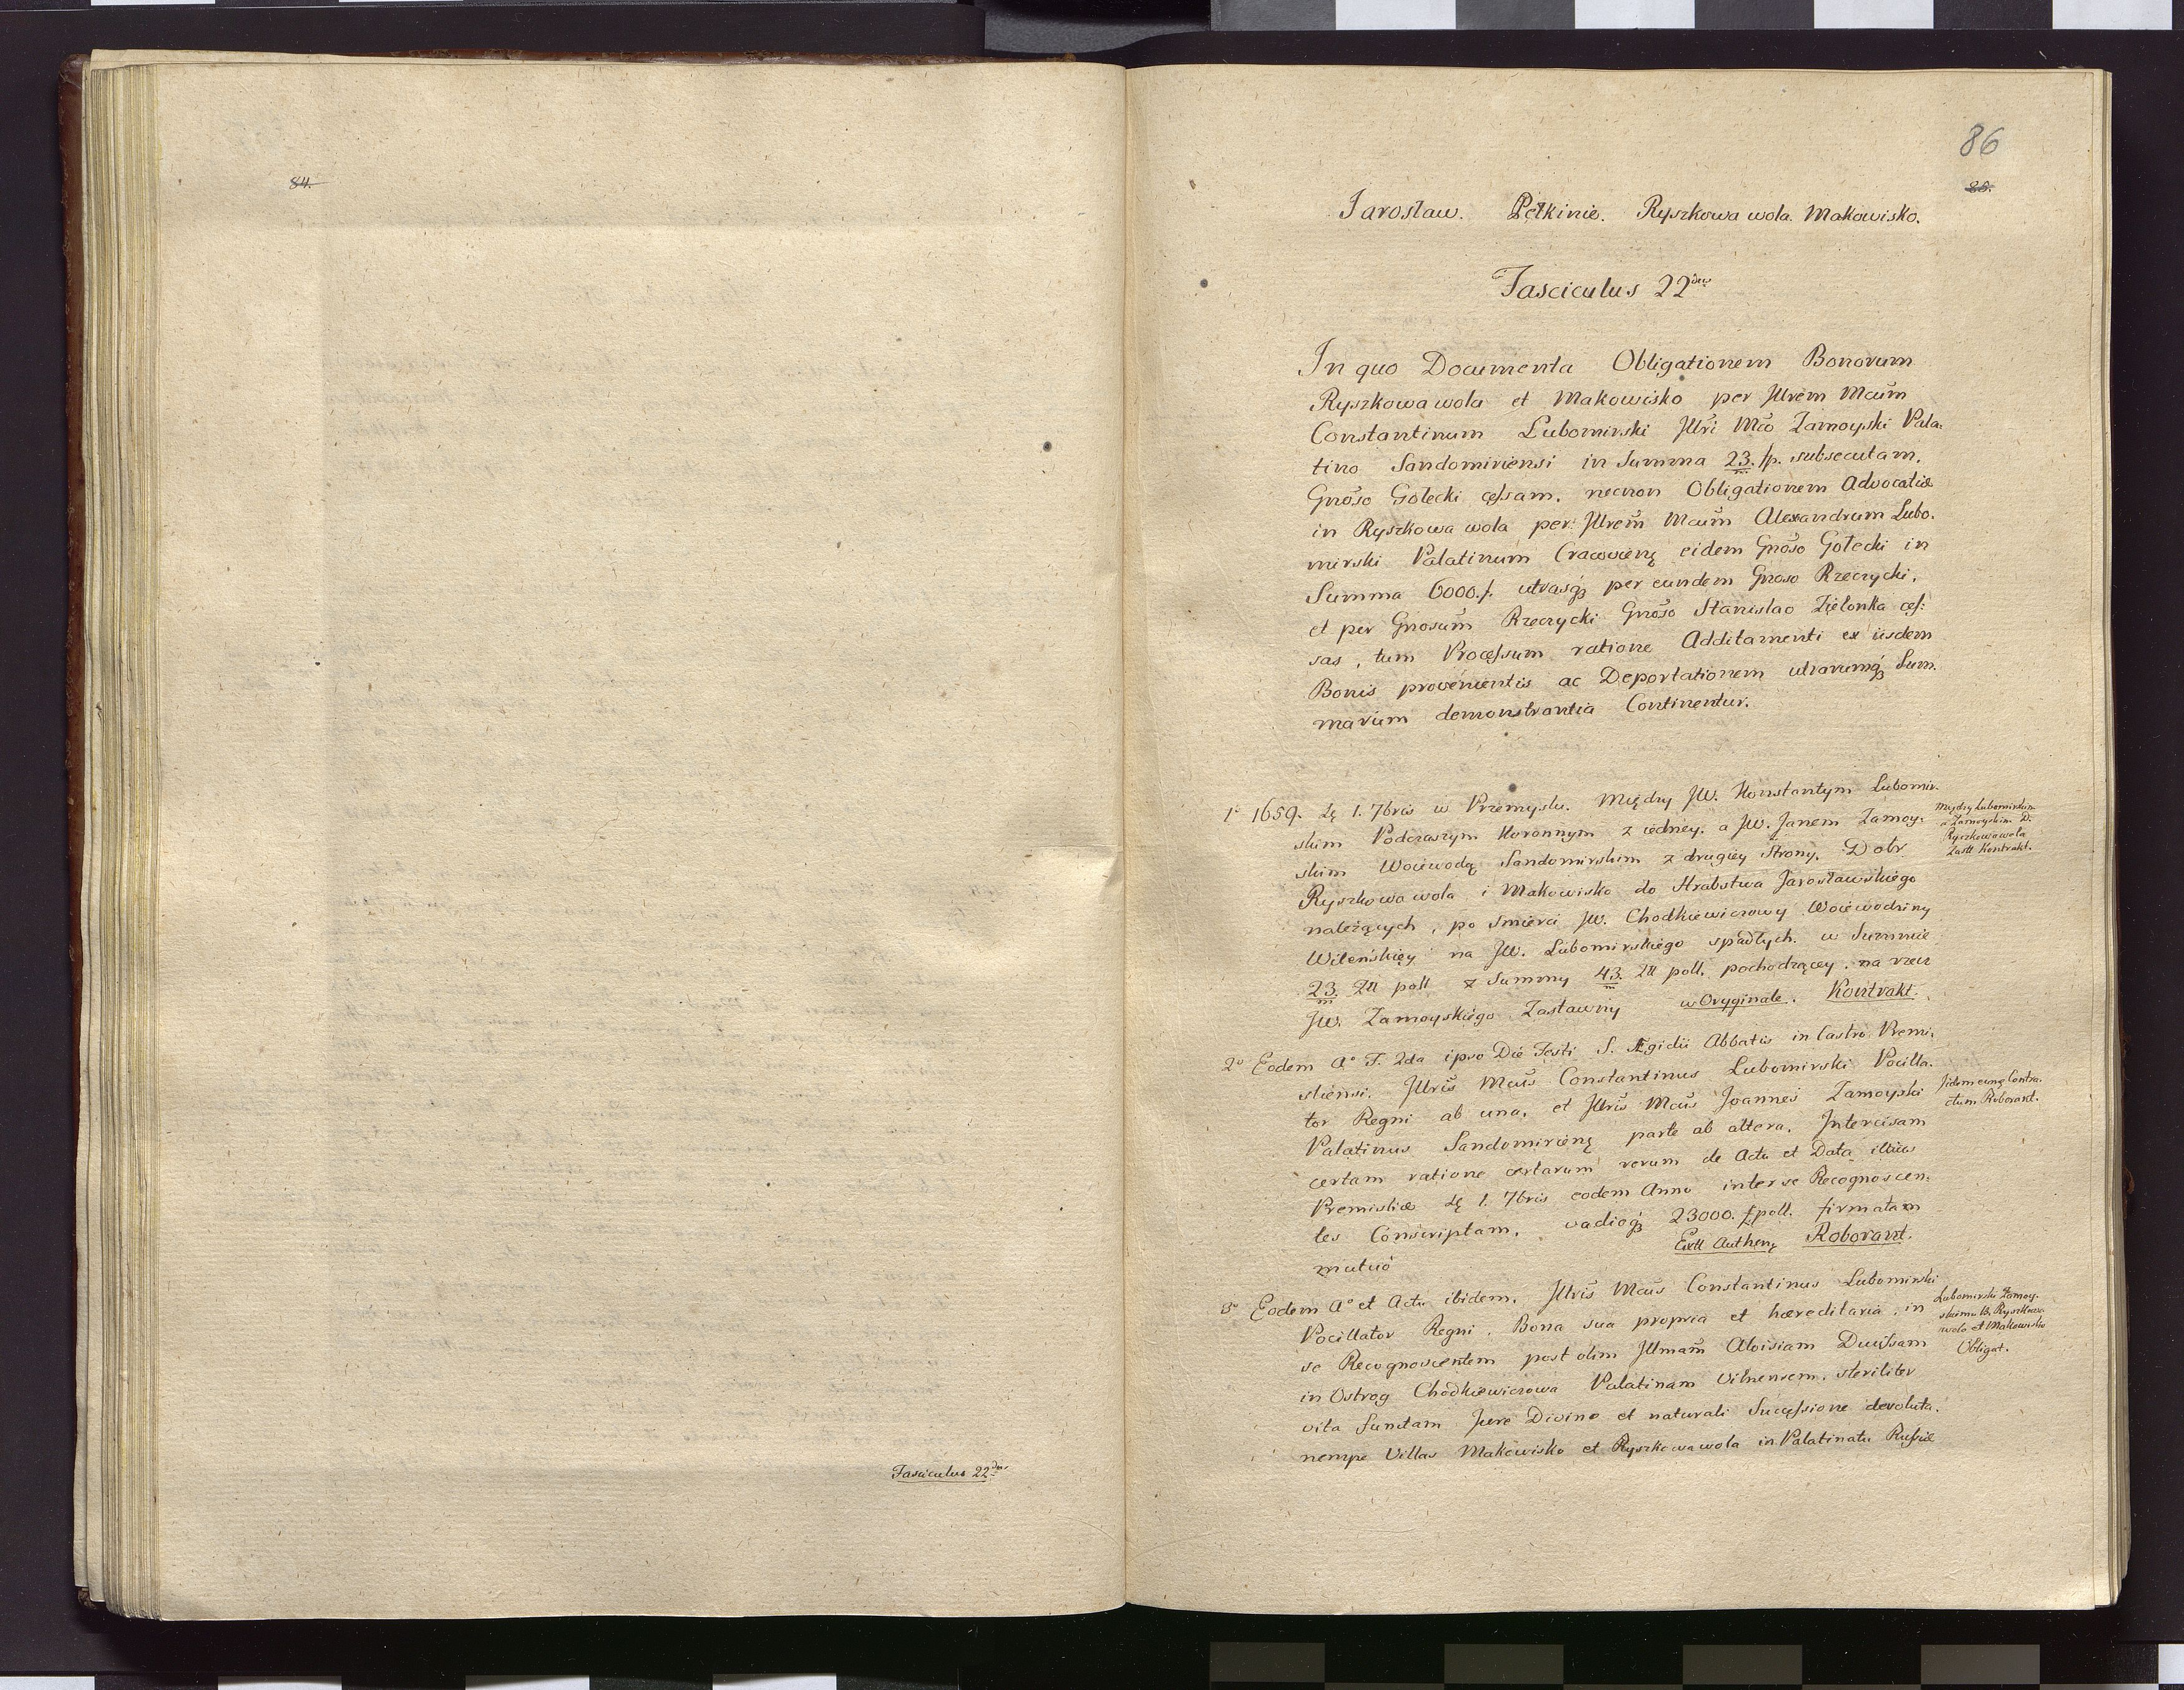 84.
Fasciculus 22dus
86
85.
Jarosław. Pełkinie. Ryszkowa wola. Makowisko.
Fasciculus 22dus
In quo Documenta Obligationem Bonorum
Ryszkowa wola et Makowisko per Jllrem Mcum
Constantinum Lubomirski Jllri Mco Zamoyski Pala:
tino Sandomiriensi in Summa 23/m. fp. subsecutam,
Gnoso Gołecki cessam, necnon Obligationem Advocatiæ
in Ryszkowa wola per Jllrem Mcum Alexandrum Lubo:
mirski Palatinum Cracovienę eidem Gnoso Gołecki in
Summa 6000.f. utrasqꝫ per eundem Gnoso Rzeczycki,
et per Gnosum Rzeczycki Gnoso Stanislao Zielonka ces:
sas, tum Processum ratione Additamenti ex iisdem
Bonis provenientis ac Deportationem utrarumqꝫ Sum:
marum demonstrantia Continentur.
1o 1659. Dę 1. 7bris w Przemyslu. Między JW. Konstantym Lubomir:
skim Podczaszym Koronnym z iedney, a JW. Janem Zamoy:
skim Woiewodą Sandomirskim z drugiey Strony, Dobr
Ryszkowa wola i Makowisko do Hrabstwa Jarosławskiego
należących, po smierci JW. Chodkiewiczowy Woiewodziny
Wileńskięy na JW. Lubomirskiego spadłych. w Summie
23/m. Zll poll z Summy 43/m. Zll poll. pochodzącey, na rzecz
JW. Zamoyskiego Zastawny w Oryginale. Kontrakt.
Między Lubomirskim
a Zamoyskim D.
Ryszkowa wola
Zastt Kontrakt.
2o Eodem Ao F. 2da ipso Die Festi S. Ægidii Abbatis in Castro Premi:
sliensi. Jllris Mcus Constantinus Lubomirski Pocilla:
tor Regni ab una, et Jllris Mcus Joannes Zamoyski
Palatinus Sandomirienę parte ab altera, Intercisam
certam ratione certarum rerum de Actu et Data illius
Premisliæ Dę 1. 7bris eodem Anno inter se Recognoscen:
tes Conscriptam, vadioqꝫ 23000. f poll. firmatam
mutuo Extt Authenę Roborant.
Jidem eunę Contra:
ctum Roborant.
3o Eodem Ao et Actu ibidem. Jllris Mcus Constantinus Lubomirski
Pocillator Regni, Bona sua propria et hæreditaria, in
se Recognoscentem post olim Jllmam Aloisiam Ducissam
in Ostrog Chodkiewiczowa Palatinam Vilnensem, steriliter
vita functam Jure Divino et naturali Successione devoluta,
nempe Villas Makowisko et Ryszkowa wola in Palatinatu Russiæ
Lubomirski Zamoy:
skiemu B. Ryszkowa
wola et Makowisko
Obligat.